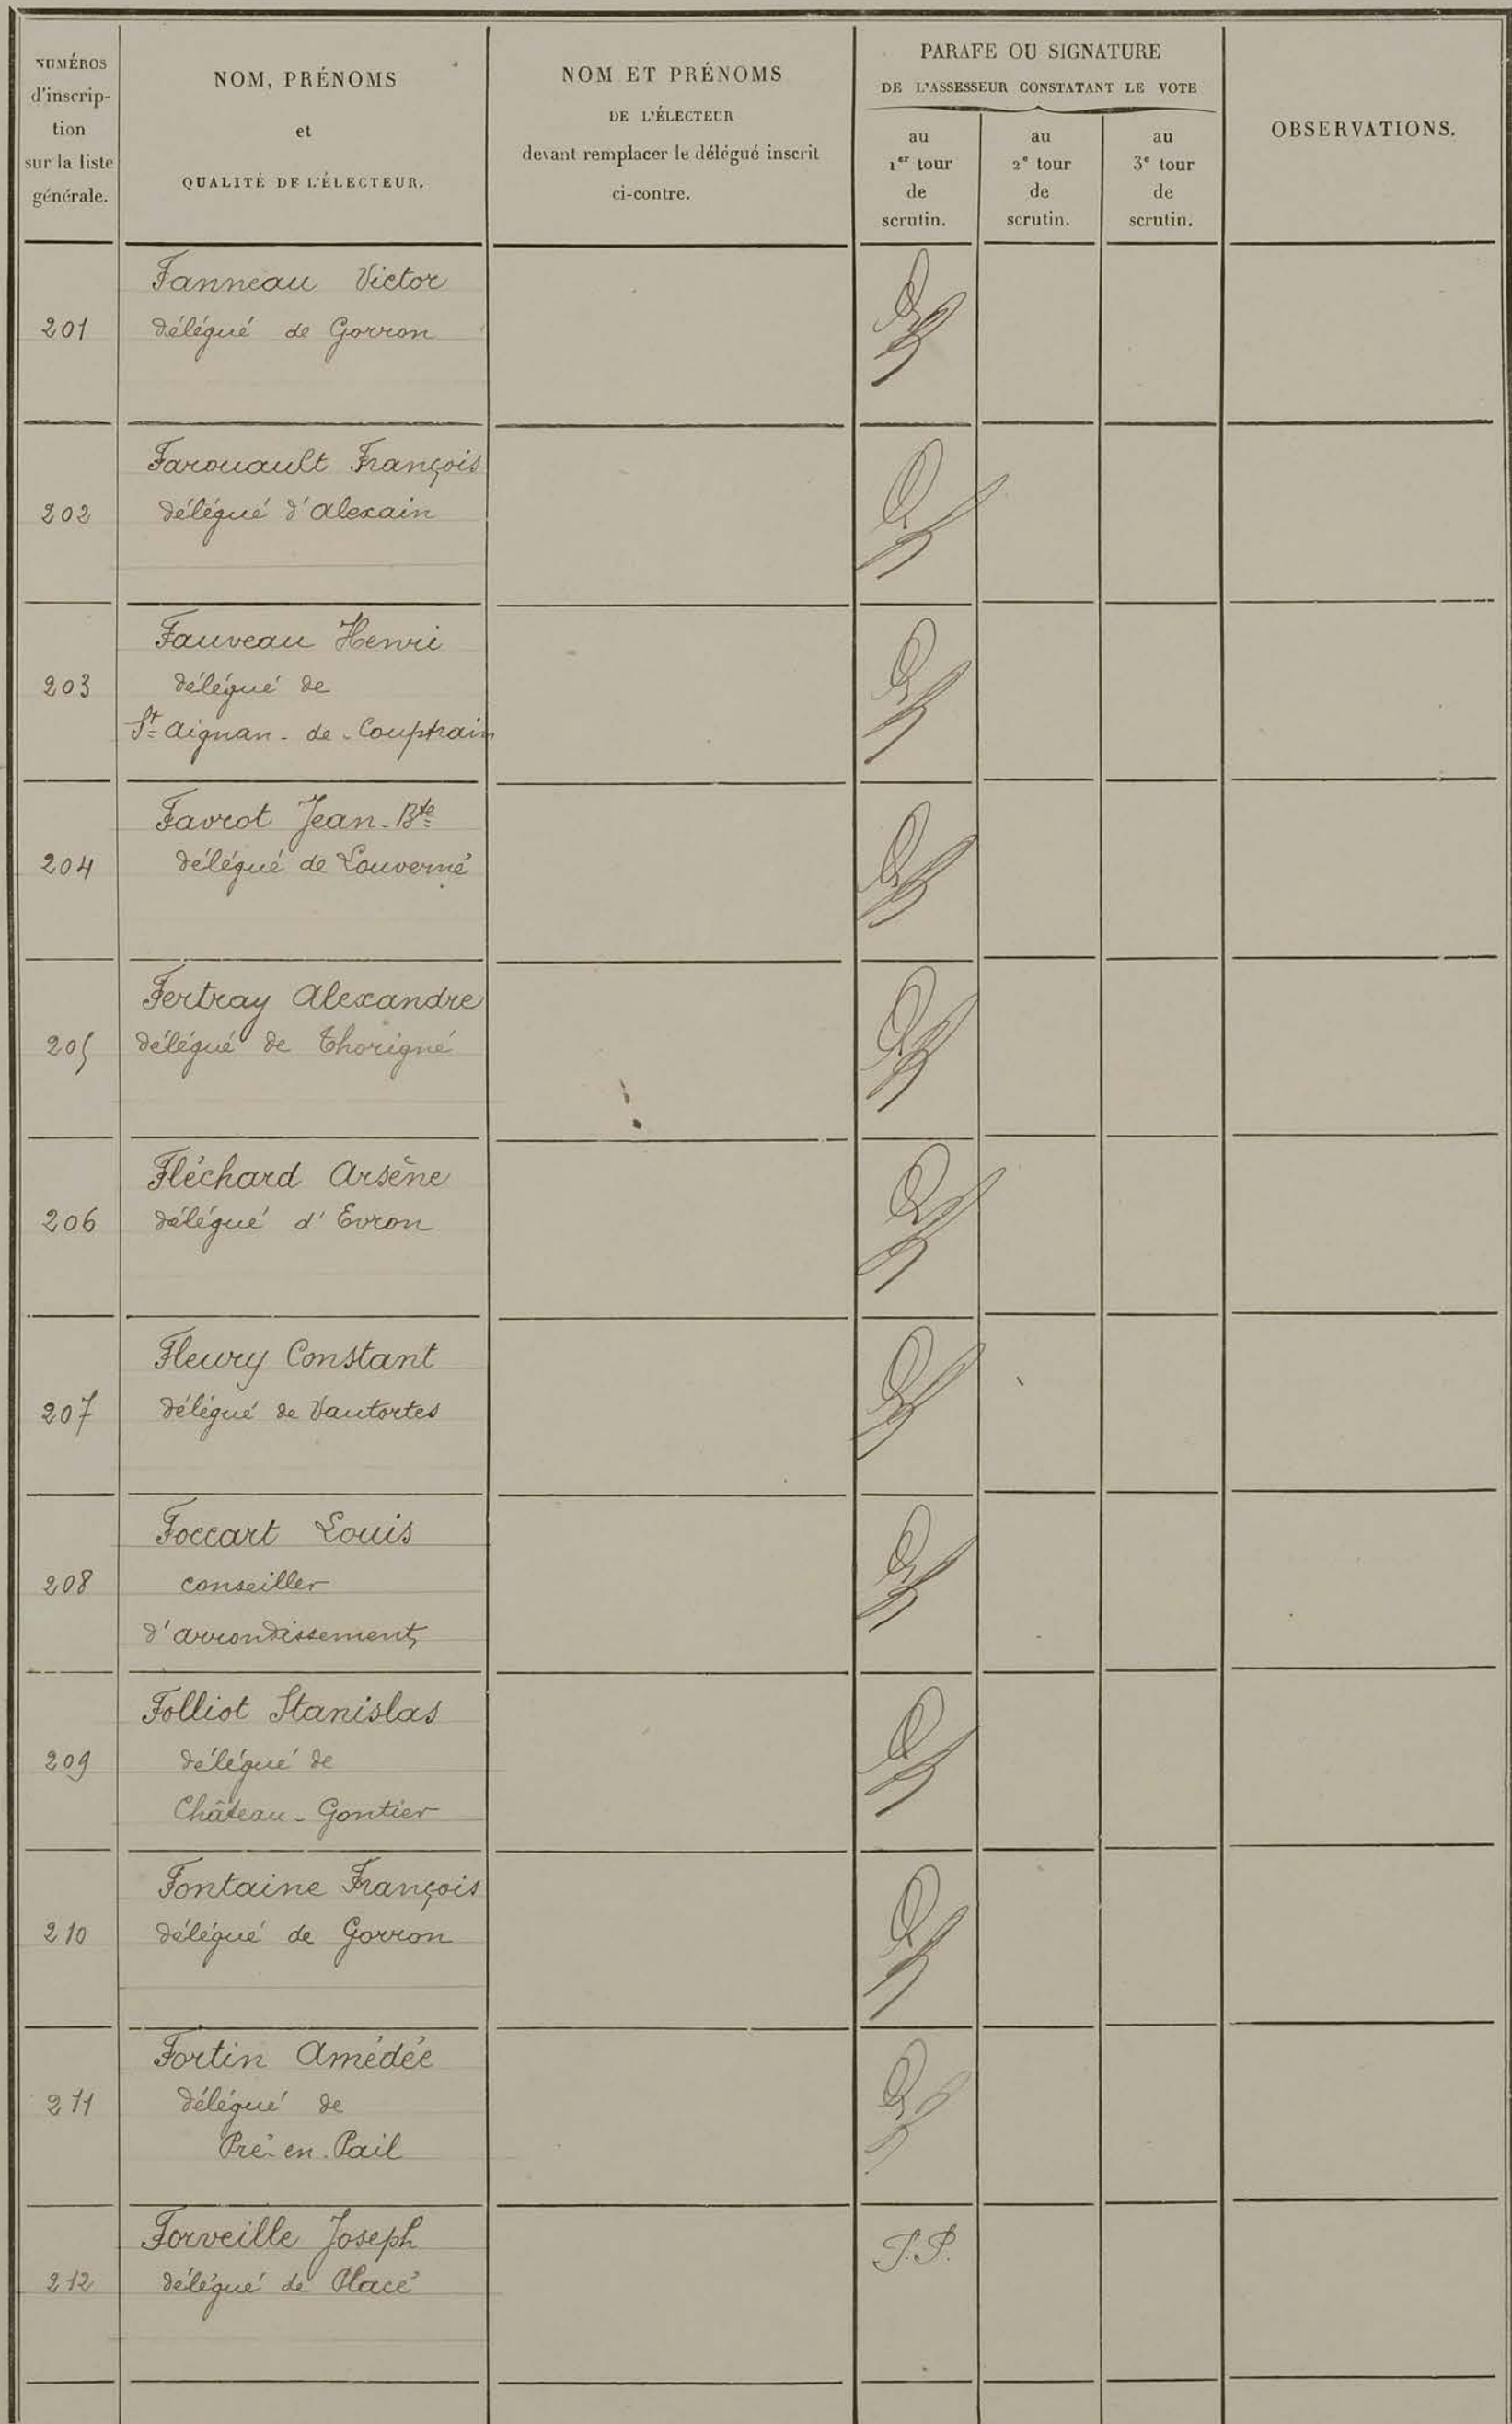 NUMÉROS
d'inscrip-
tion
sur la liste
générale.
NOM, PRÉNOMS
et
QUALITÉ DE L'ÉLECTEUR.
NOM ET PRÉNOMS
DE L'ÉLECTEUR
devant remplacer le délégué inscrit
ci-contre.
PARAFE OU SIGNATURE
DE L'ASSESSEUR CONSTATANT LE VOTE
au
1er tour
de
scrutin.
au
2e tour
de
scrutin.
au
3e tour
de
scrutin.
OBSERVATIONS.
Fanneau Victor
201 délégué de Gorron
Farouault François
202 délégué d'Alexain
Fauveau Henri
203 délégué de
St Aignan-de-Couptrain
Favrot Jean-Bte
204 délégué de Louverné
Fertray Alexandre
205 délégué de Thorigné
Fléchard Arsène
206 délégué d'Evron
Fleury Constant
207 délégué de Vautortes
Foccart Louis
208 conseiller
d'arrondissement
Folliot Stanislas
209 délégué de
Château-Gontier
Fontaine François
210 délégué de Gorron
Fortin Amédée
211 délégué de
Pré-en-Pail
Forveille Joseph
212 délégué de Placé